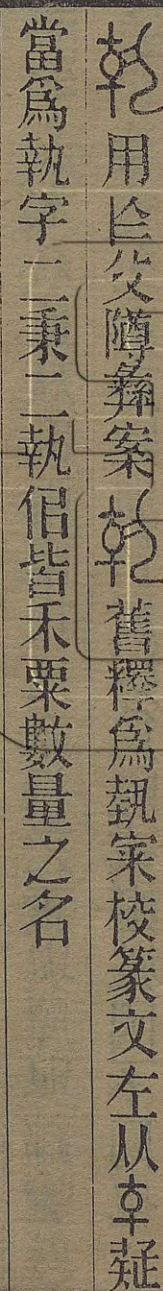 用㠯父隮彝案舊釋爲埶宷校篆文左从𠦪疑
當爲執字二秉二執侶皆禾粟數量之名